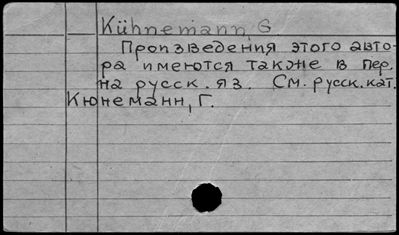 Kühnemann, G
Произведения этого авто-
ра имеются также в пер.
на русск. яз. См. русск. кат.
Кюнеманн, Г.